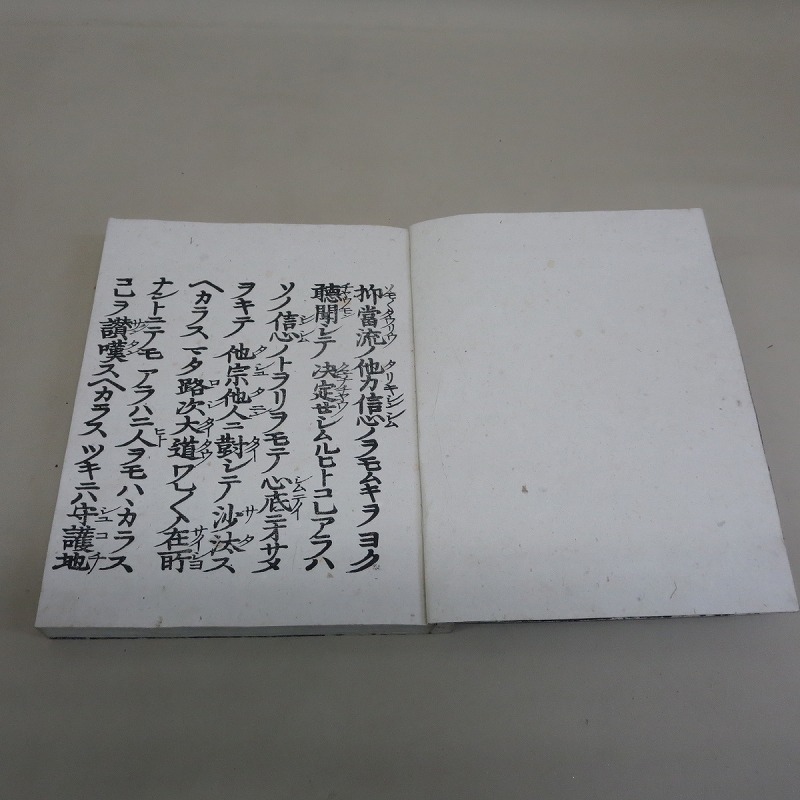 抑當流ノ他力信心ノヲモムキヲヨク
聽聞シテ決定セシムルヒトコレアラハ
ソノ信心ノトヲリヲモテ心底ニオサメ
ヲキテ他宗他人ニ對シテ沙汰ス
ヘカラスマタ路次大道ワレ〳〵ノ在所
ナントニテモアラハニ人ヲモハヽカラス
コレヲ讃嘆スヘカラスツキニハ守護地